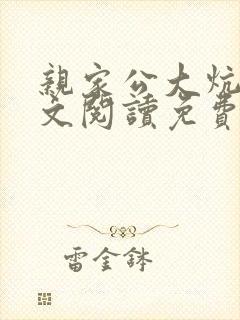 親家公大炕
文閱讀免費
雷金鉢